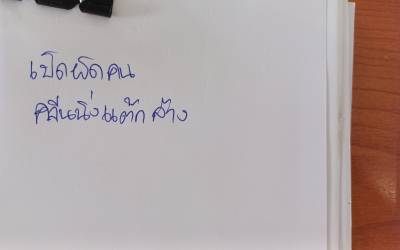 เปิดผิดคน
คลีนนิ่งแต๊ก ล้าง